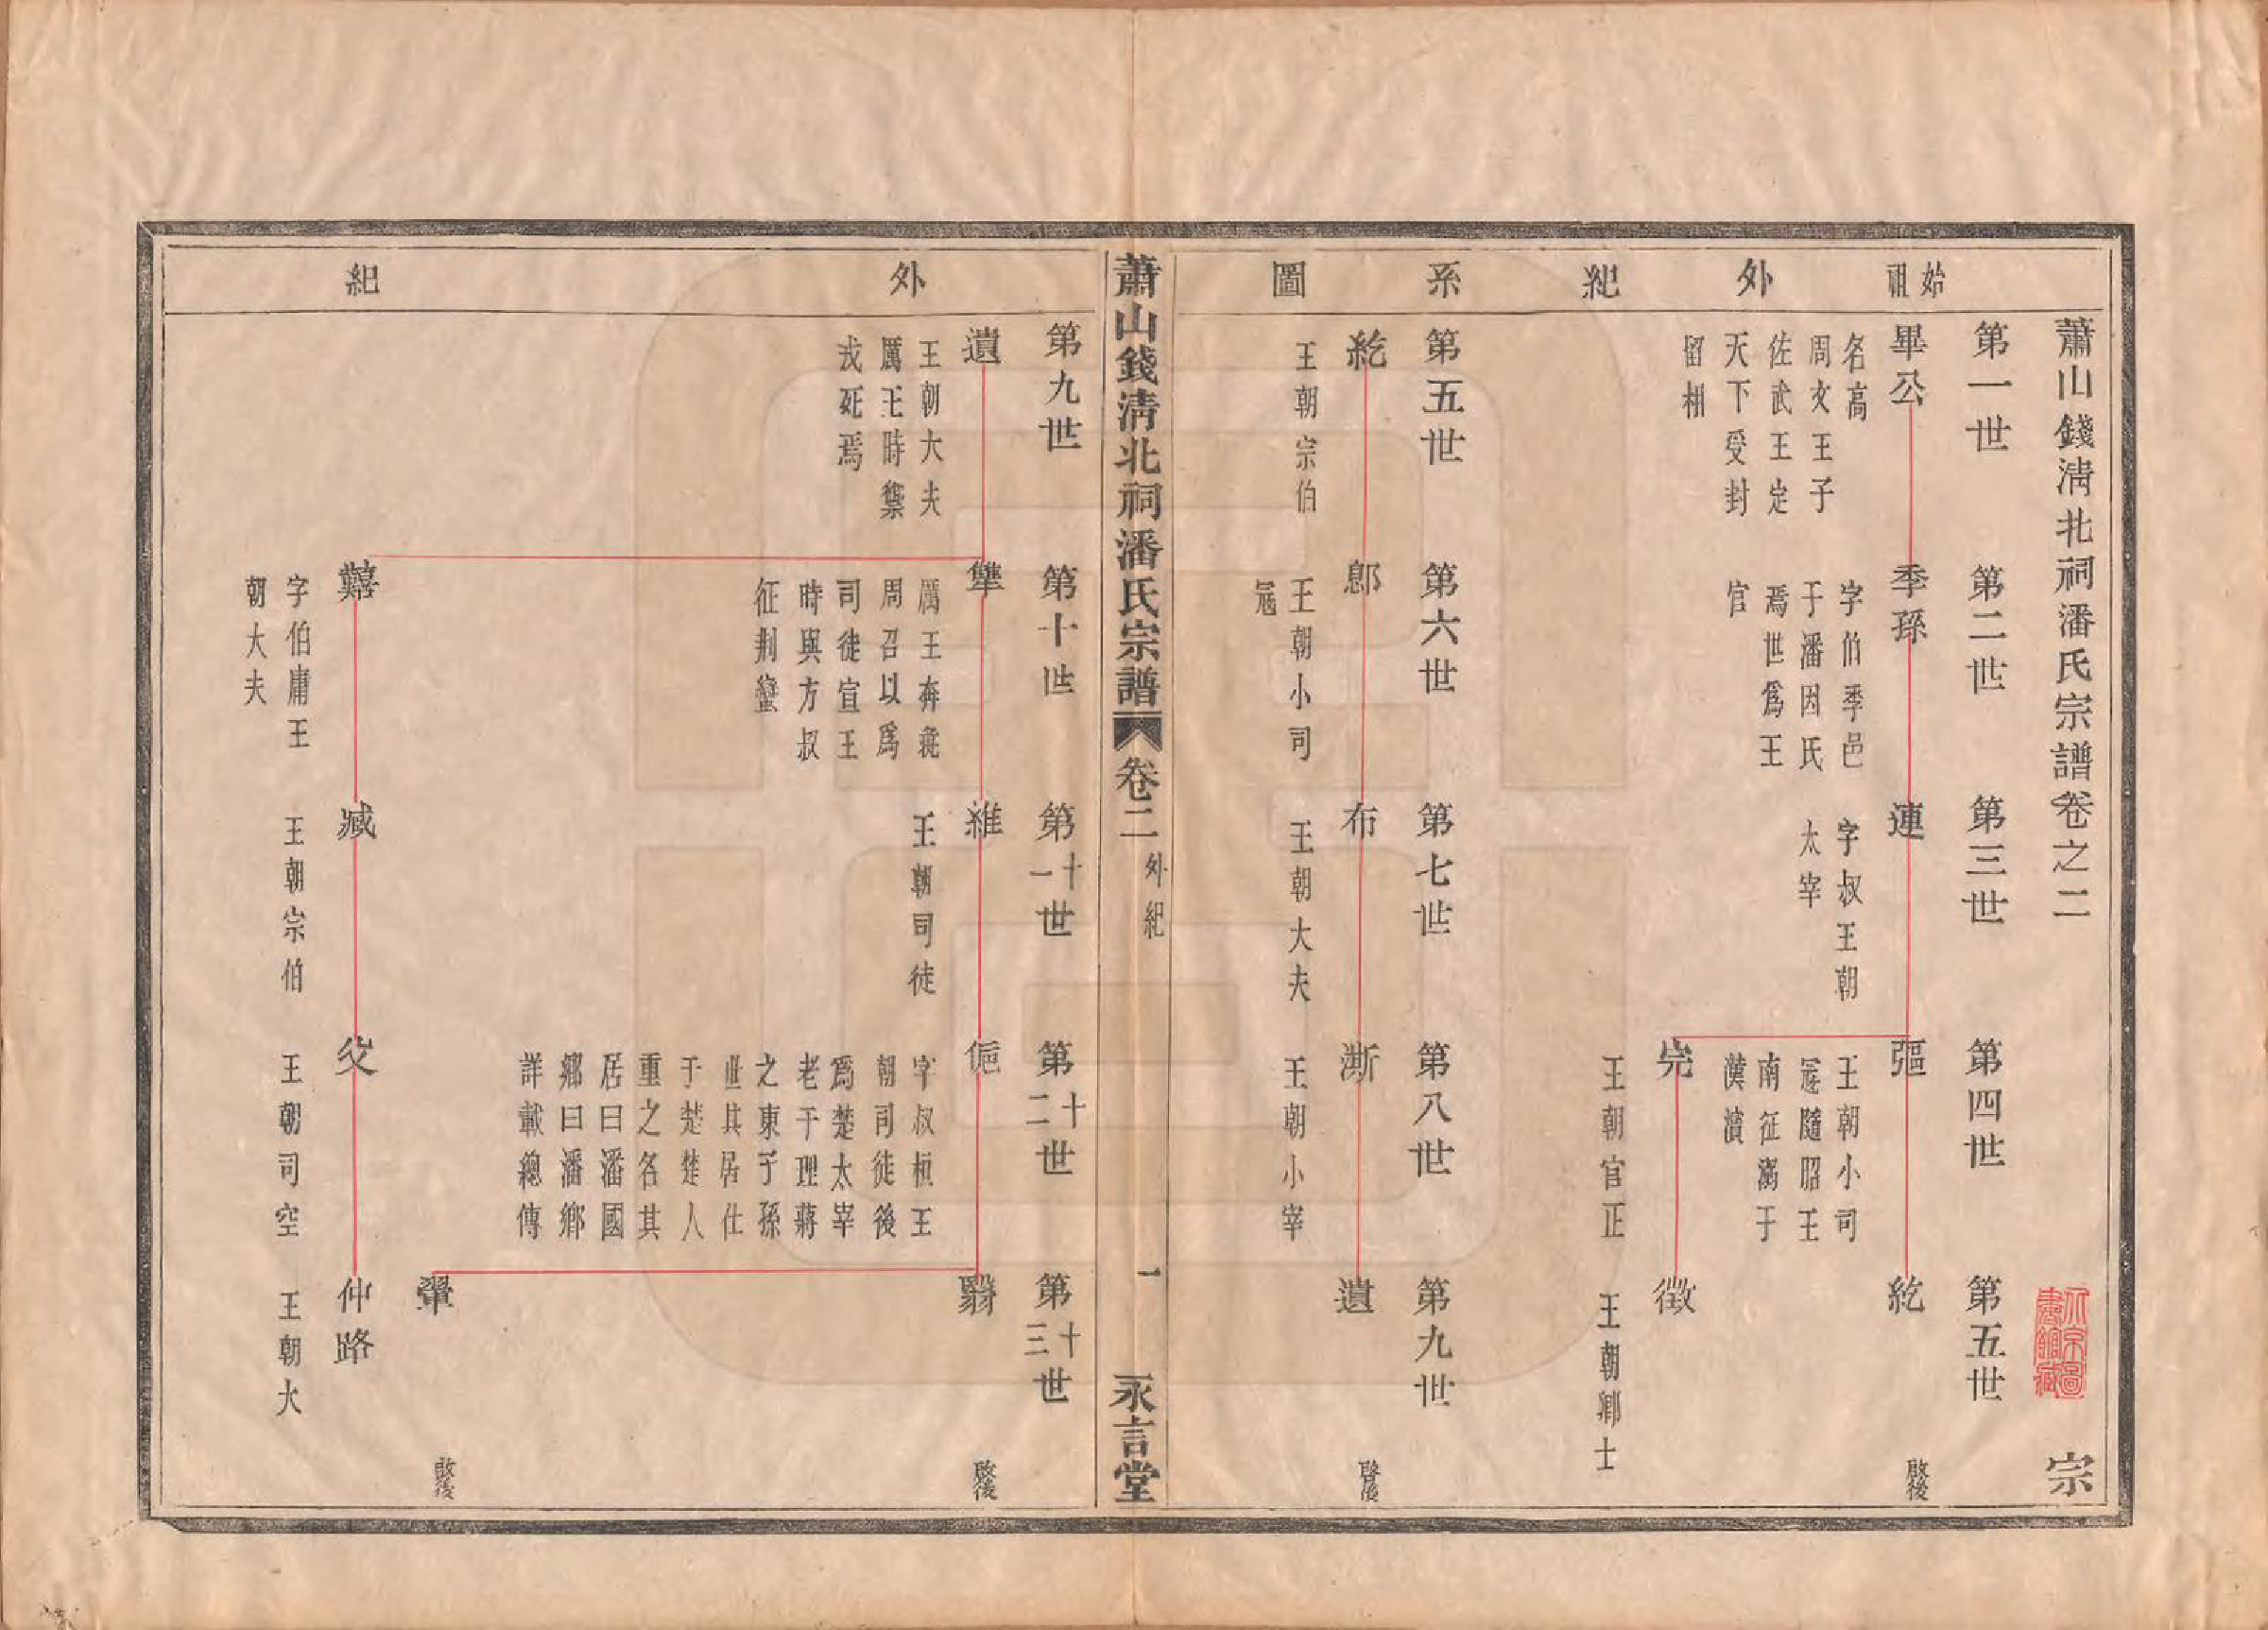 蕭山錢淸北祠潘氏宗譜卷之二
宗
始祖
外
紀
系
圖
第一世
畢公
名高
周文王子
佐武王定
天下受封
留相
第二世
季孫
字伯季邑
于潘因氏
焉世爲王
官
第三世
連
字叔王朝
太宰
第四世
彄
王朝小司
寇隨昭王
南征溺于
漢濱
尭
王朝官正
第五世
紇
啟後
徵
王朝卿士
第五世
紇
王朝宗伯
第六世
郻
王朝小司
寇
第七世
布
王朝大夫
第八世
漸
王朝小宰
第九世
遺
啟後
蕭山錢淸北祠潘氏宗譜
卷二
外紀
一
永言堂
外
紀
第九世
遺
王朝大夫
厲王時禦
戎死焉
第十世
犨
厲王奔彘
周召以爲
司徒宣王
時與方叔
征荆蠻
囏
字伯庸王
朝大夫
第十一世
維
王朝司徒
臧
王朝宗伯
第十二世
字叔桓王
朝司徒後
爲楚太宰
老于理蔣
之東子孫
世其居仕
于楚楚人
重之名其
居曰潘國
鄉曰潘鄉
詳載總傳
父
王朝司空
第十三世
翳
啟後
翬
啟後
仲路
王朝大